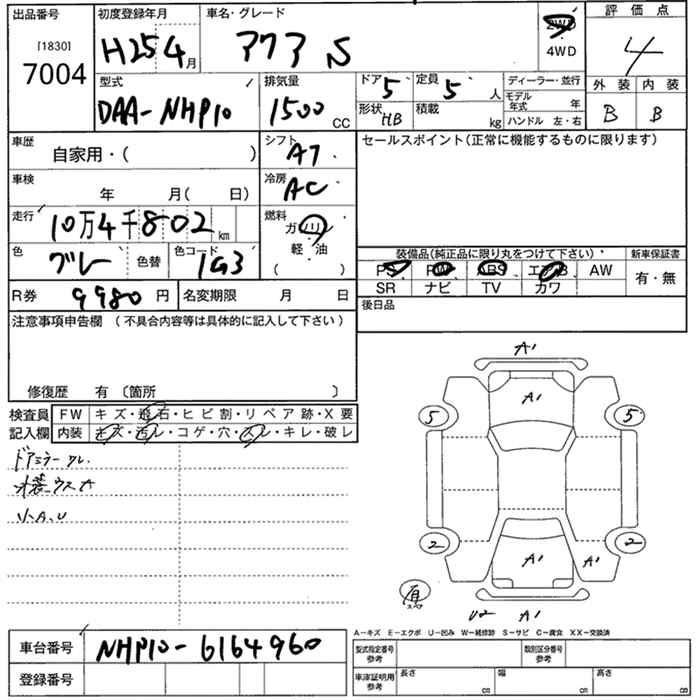 出品番号
[1830]
7004
初度登録年月
H25 4月
車名・グレード
アクア S
2WD
4WD
評価点
4
型式
DAA-NHP10
排気量
1500 CC
ドア 5
定員 5 人
形状 HB
積載 kg
ディーラー・並行
モデル年式 年
ハンドル 左・右
外装 内装
B B
車歴
自家用・( )
シフト
AT
セールスポイント(正常に機能するものに限ります)
車検
年 月( 日)
冷房
AC
走行
10万4千802km
燃料
ガソリン
軽・油
( )
色
グレー
色替
色コード
1G3
装備品(純正品に限り丸をつけて下さい)
新車保証書
PS PW ABS エアB AW
有・無
SR ナビ TV カワ
R券 9980円
名変期限 月 日
後日品
注意事項申告欄 (不具合内容等は具体的に記入して下さい)
修復歴 有 〔箇所 〕
検査員
記入欄
FW キズ・飛石・ヒビ割・リペア跡・X要
内装 キズ・汚レ・コゲ・穴・スレ・キレ・破レ
ドアミラー
小A.U
A1
A1
5
5
2
2
A1
A1
有
U2 A1
A-キズ E-エクボ U-凹み W-補修跡 S-サビ C-腐食 XX-交換済
車台番号 NHP10-6164960
登録番号
型式指定番号
参考
類別区分番号
参考
車庫証明用
参考
長さ cm
幅 cm
高さ cm